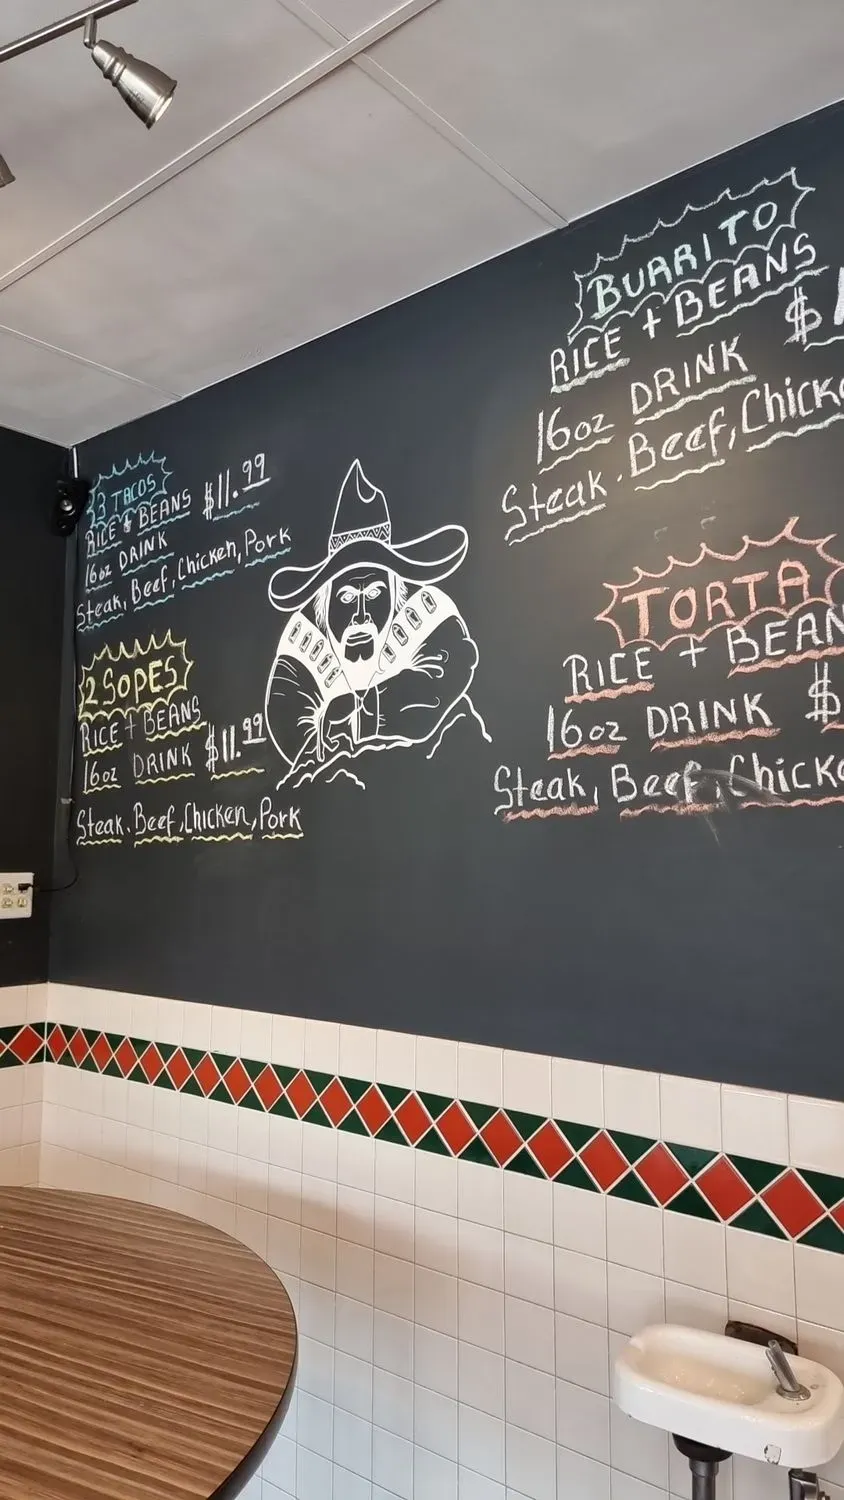 3 TACOS
RICE & BEANS $11.99
16oz DRINK
Steak, Beef, Chicken, Pork
2 SOPES
RICE + BEANS
16oz DRINK $11.99
Steak. Beef, Chicken, Pork
BURRITO
RICE + BEANS
16oz DRINK $1
Steak. Beef, Chick
TORTA
RICE + BEAN
16oz DRINK $
Steak, Beef, Chick